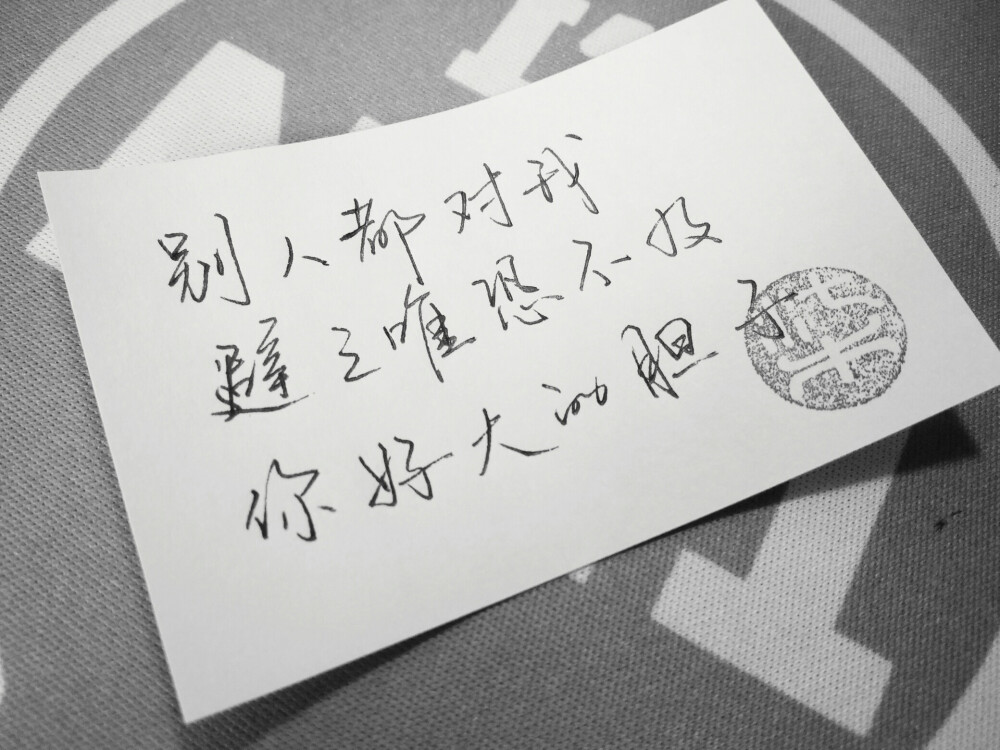 别人都对我
避之唯恐不及
你好大的胆子